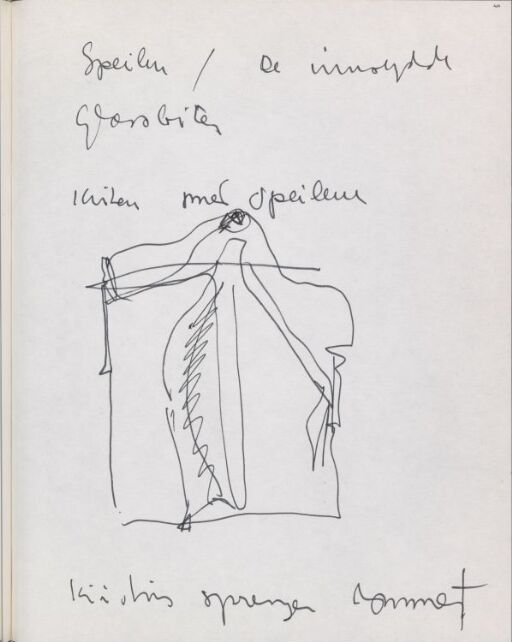 Speilen / De innsydde
Glassbiter
Kisten med speilene
sprenger rommet